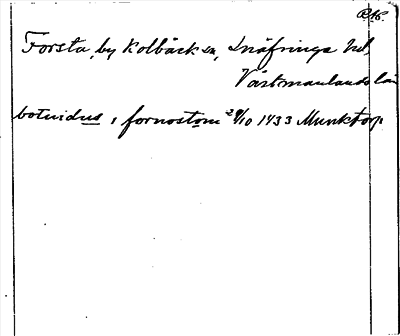 RAP.
Forsta, by Kolbäck sn, Snäfringe hd,
Västmanlands län
botuidus, i fornostom 29/10 1433 Munktorp